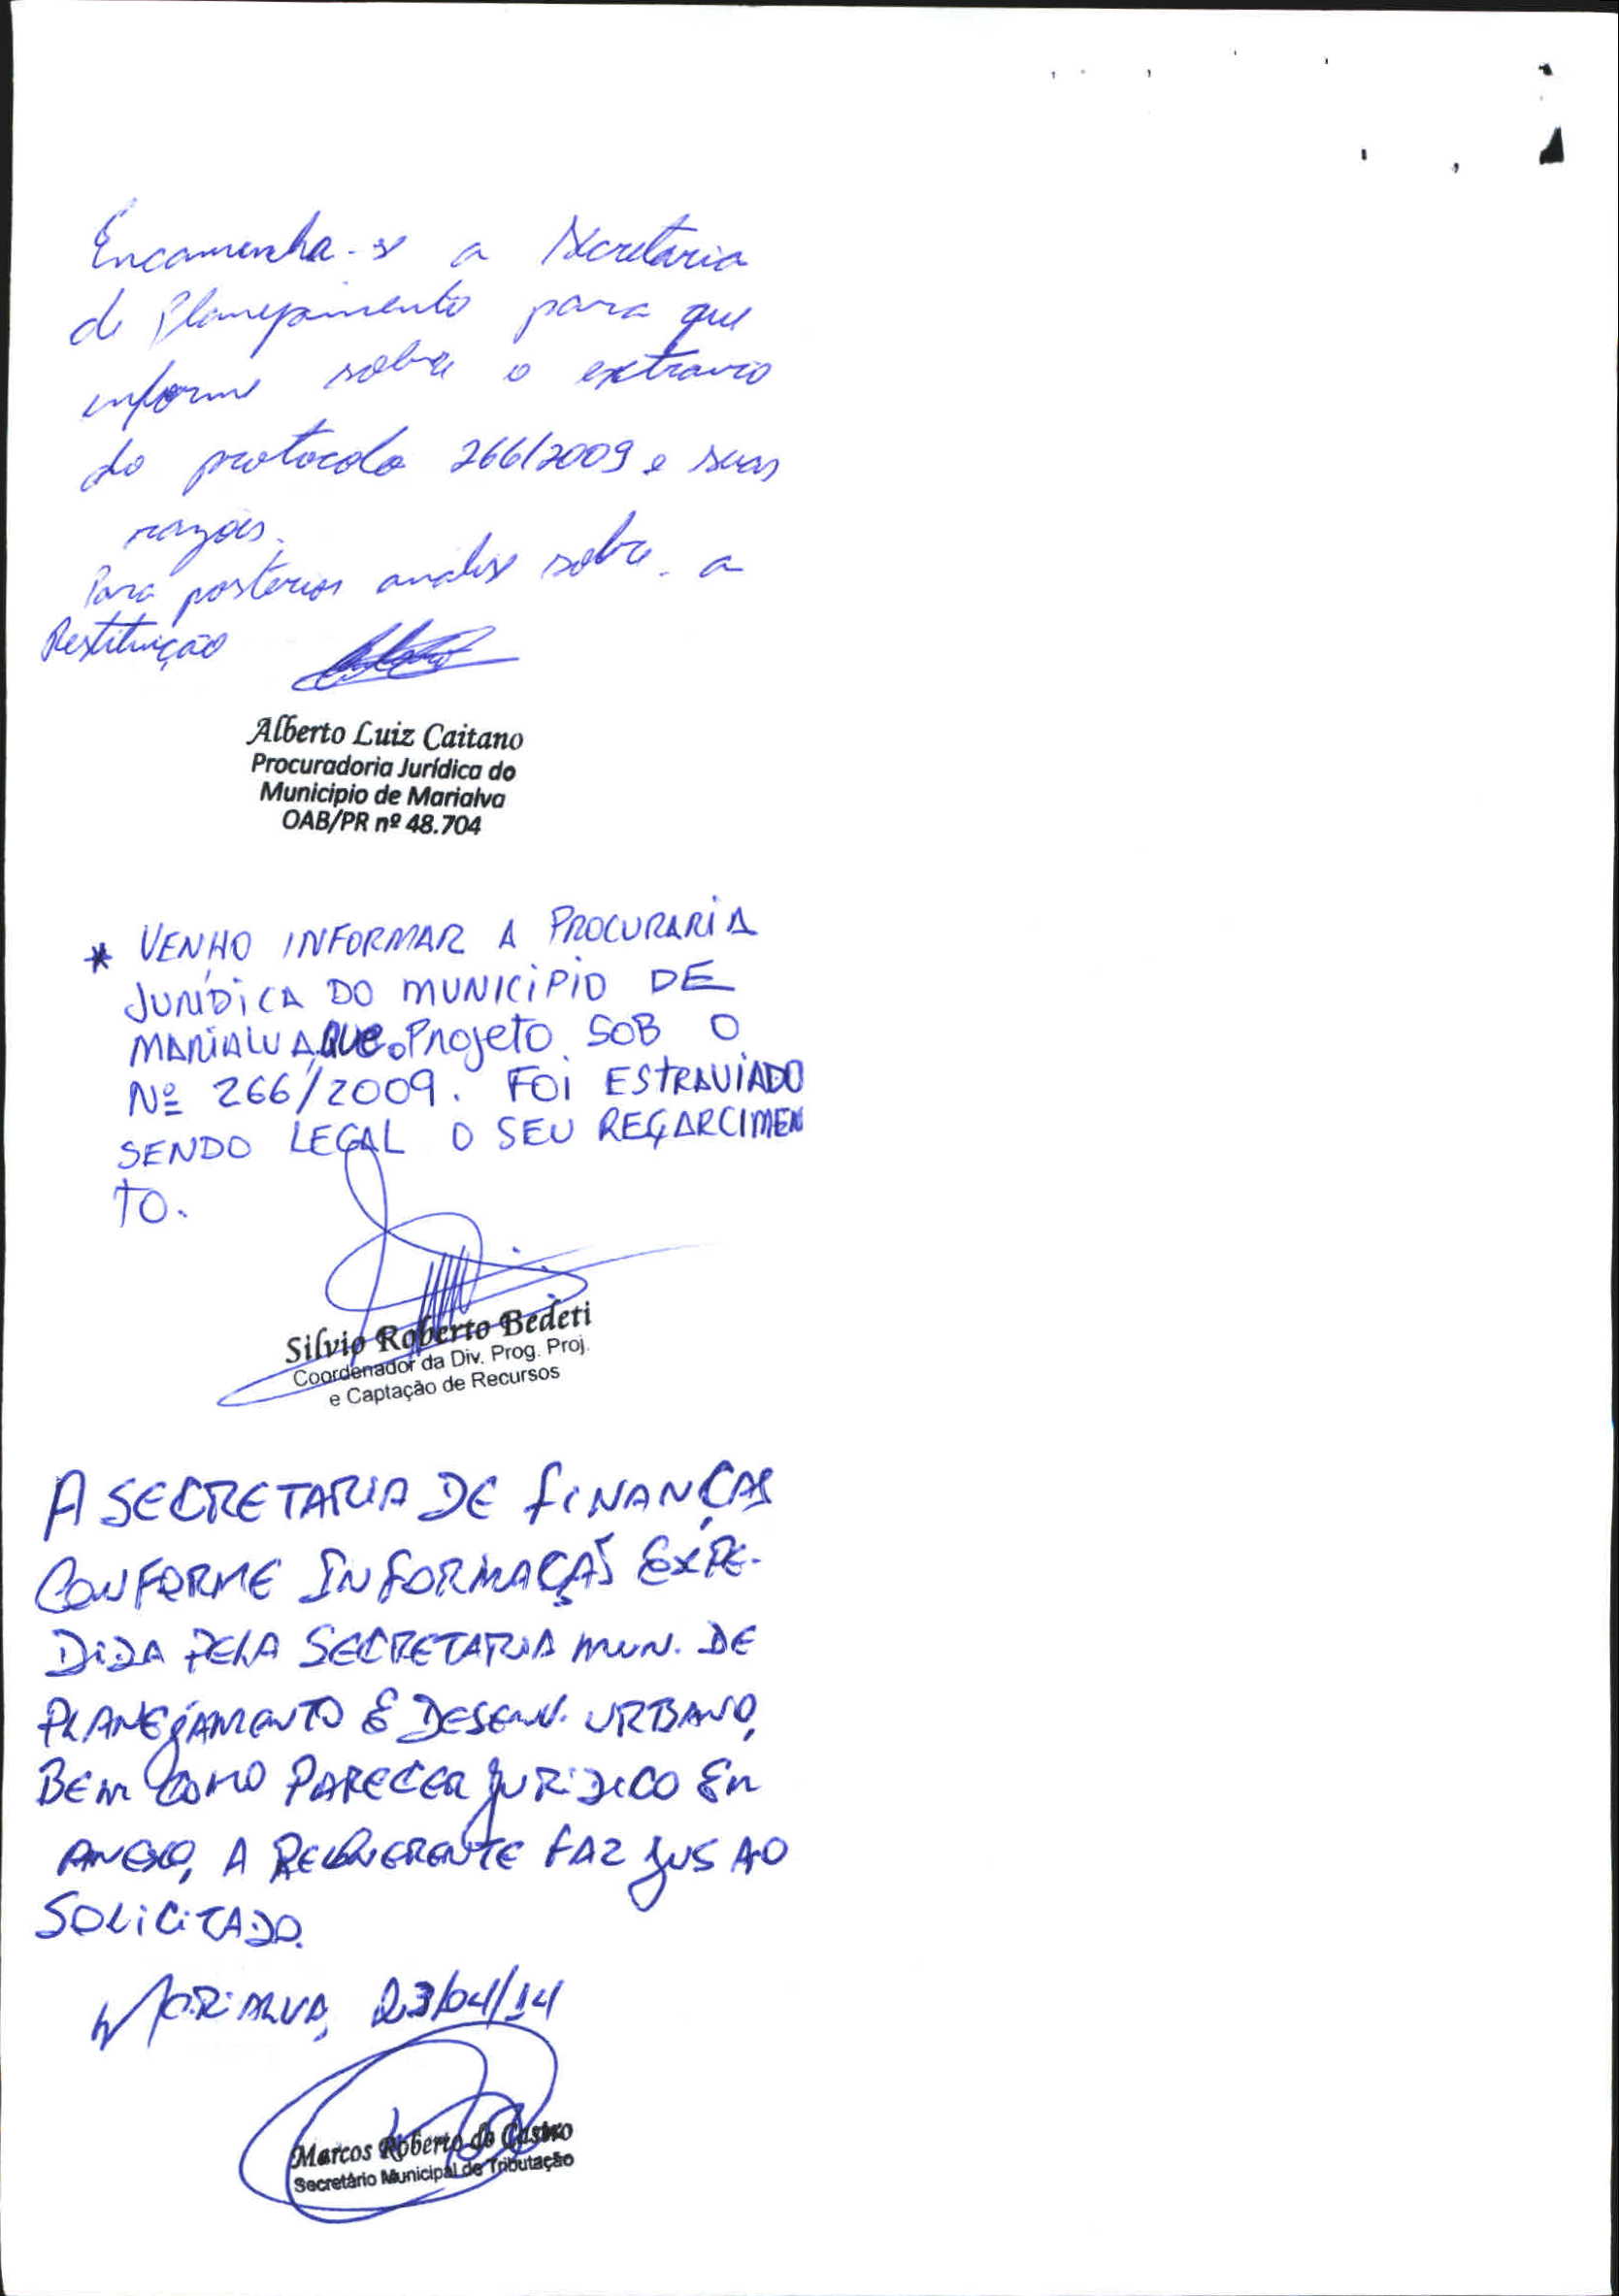 Encaminha-se a Secretaria
de Planejamento para que
informe sobre o extravio
do protocolo 266/2009 e suas
razões.
Para posterior analise sobre a
Restituição
Alberto Luiz Caitano
Procuradoria Jurídica do
Municipio de Marialva
OAB/PR nº 48.704
* VENHO INFORMAR A PROCURARIA
JURÍDICA DO MUNICIPIO DE
MARIALVA, QUE o Projeto SOB O
Nº 266/2009. FOI ESTRAVIADO
SENDO LEGAL O SEU REÇARCIMEN
TO.
Silvio Roberto Bedeti
Coordenador da Div. Prog. Proj.
e Captação de Recursos
A SECRETARIA DE FINANÇAS
CONFORME INFORMAÇÃO EXPE-
DIDA PELA SECRETARIA MUN. DE
PLANEJAMENTO E DESENV. URBANO,
BEM COMO PARECER JURIDICO EM
ANEXO, A REQUERENTE FAZ JUS AO
SOLICITADO.
MARIALVA, 23/04/14
Marcos Roberto de Castro
Secretário Municipal de Tributação